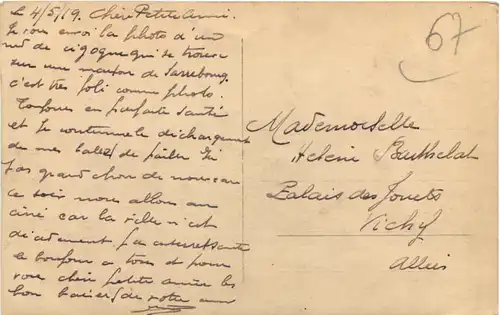 Le 4/5/19. Chère Petite Amie.
Je vous envoi la photo d'un
nid de cigogne qui se trouve
sur une maison de Sarrebourg
c'est très joli comme photo.
Toujours en parfaite santé
et je continue le déchargement
de mes balles de paille. Ici
pas grand chose de nouveau
ce soir nous allons au
ciné car la ville n'est
décidement pas interessante
le bonjour a tous et pour
vous chère petite amie les
bon baisers de votre ami
67
Mademoiselle
Helene Barthelat
Palais des Jouets
Vichy
Allier